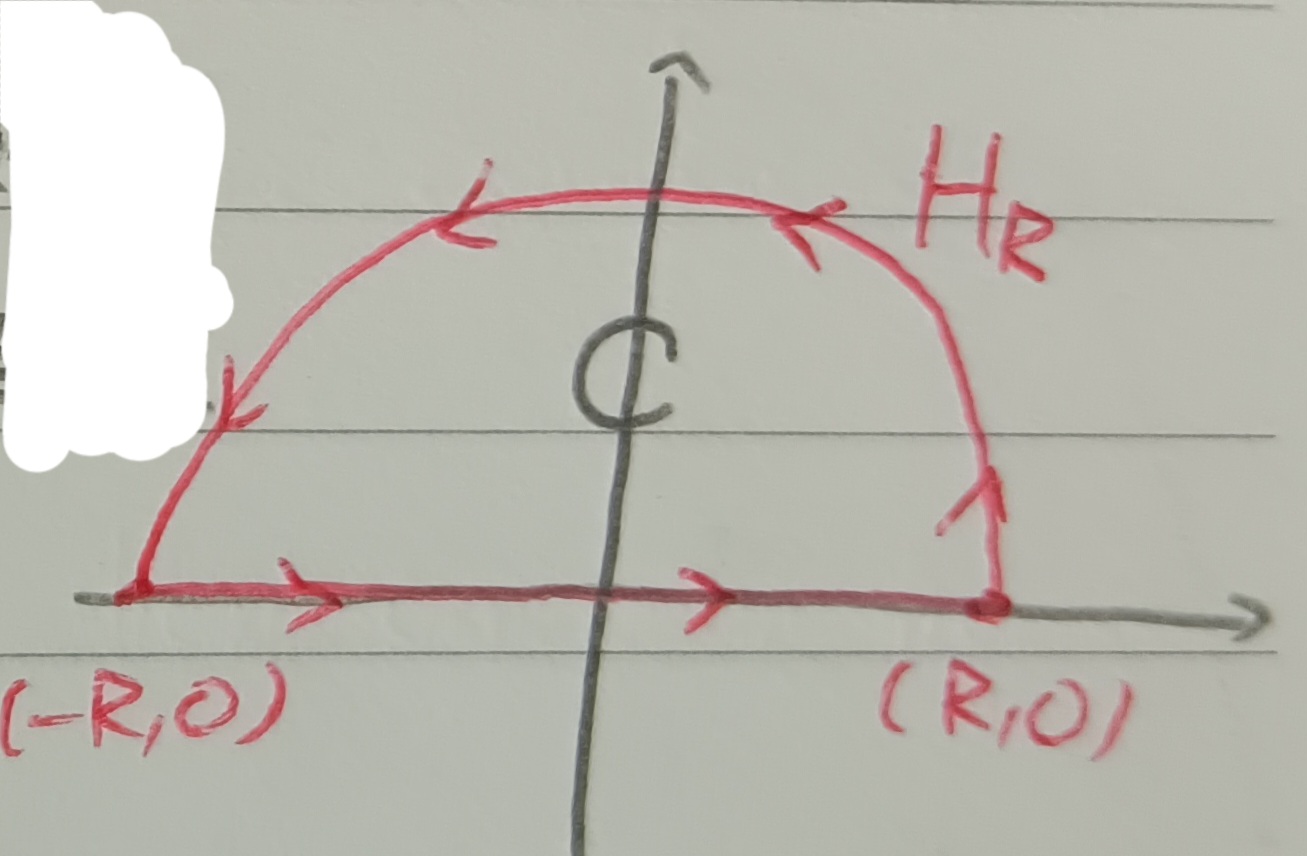 H_R
C
(-R,0) (R,0)